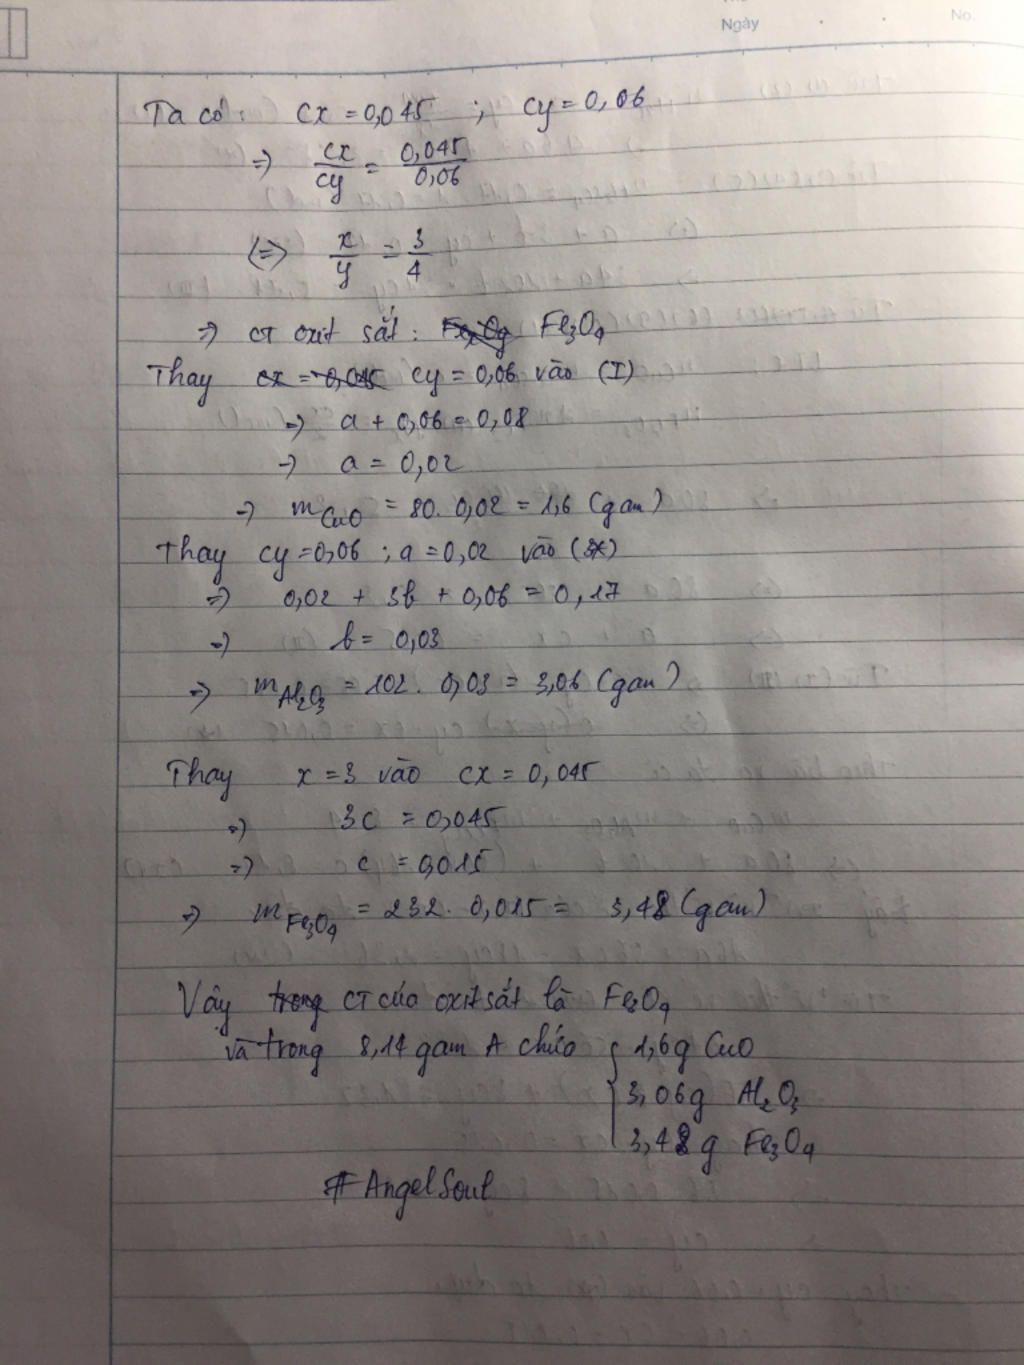 Ngày
No.
Ta có: cx = 0,045 ; cy = 0,06
=> cx/cy = 0,045/0,06
<=> x/y = 3/4
=> CT oxit sắt: FexOy Fe3O4
Thay cx = 0,045 cy = 0,06 vào (I)
=> a + 0,06 = 0,08
=> a = 0,02
=> mCuO = 80. 0,02 = 1,6 (gam)
Thay cy = 0,06 ; a = 0,02 vào (*)
=> 0,02 + 3b + 0,06 = 0,17
=> b = 0,03
=> mAl2O3 = 102. 0,03 = 3,06 (gam)
Thay x = 3 vào cx = 0,045
=> 3c = 0,045
=> c = 0,015
=> mFe3O4 = 232. 0,015 = 3,48 (gam)
Vậy trong CT của oxit sắt là Fe3O4
và trong 8,14 gam A chứa { 1,6g CuO
3,06g Al2O3
3,48g Fe3O4
#AngelSoul